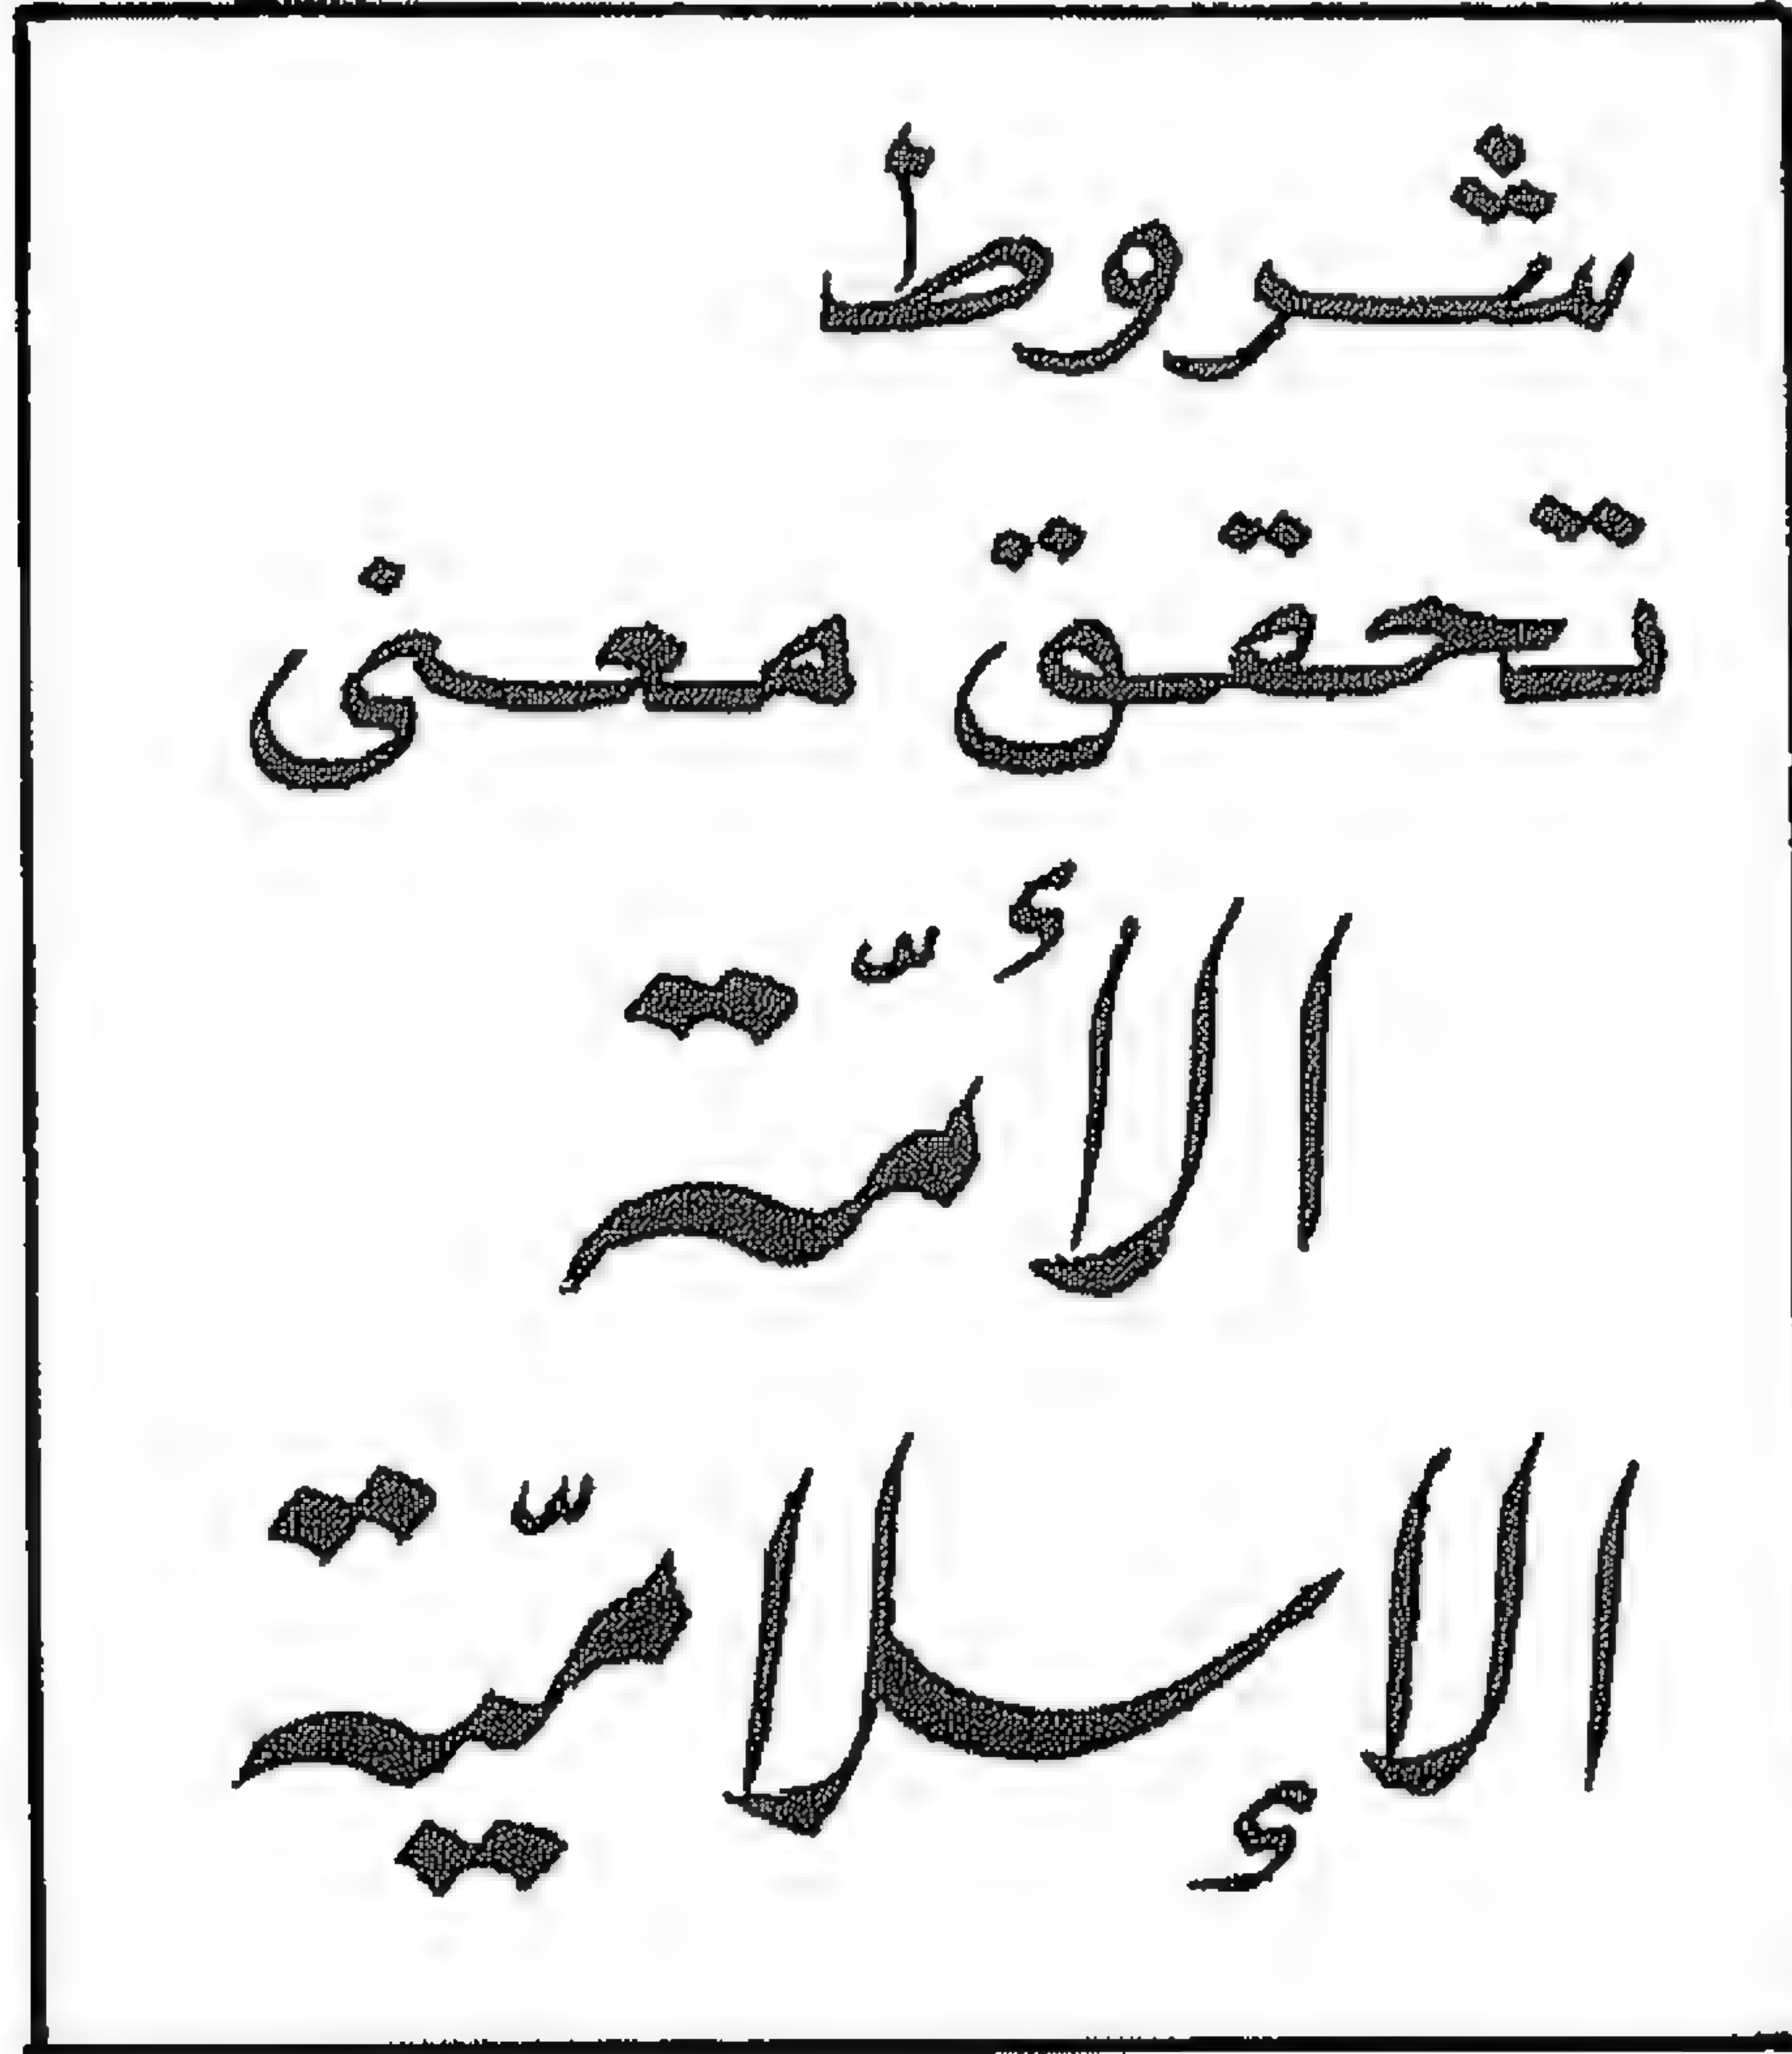 شروط
تحقق معنى
الأمّة
الإسلاميّة